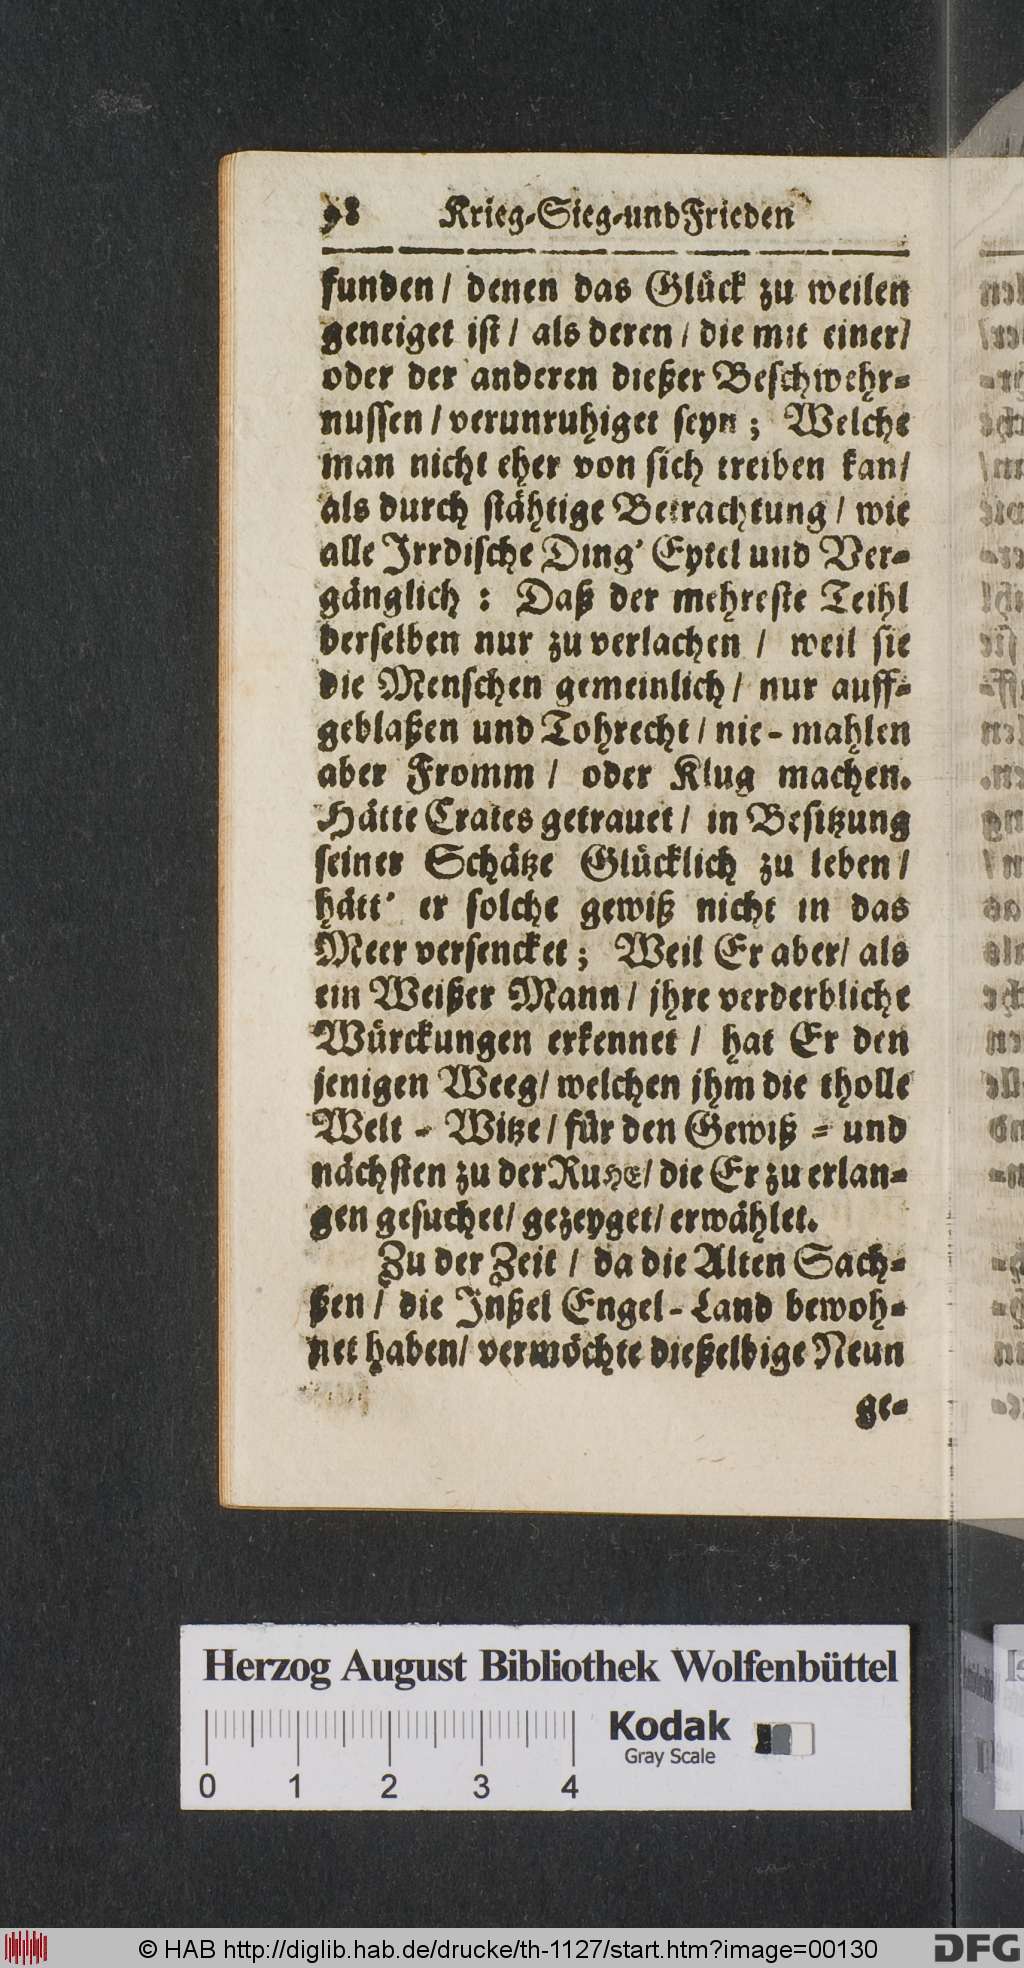 98 Krieg-Sieg-und Frieden
funden / denen das Glück zu weilen
geneiget ist / als deren / die mit einer /
oder der anderen dießer Beschwehr-
nussen / verunruhiget seyn ; Welche
man nicht eher von sich treiben kan /
als durch stähtige Betrachtung / wie
alle Irrdische Ding' Eytel und Ver-
gänglich : Daß der mehreste Teihl
derselben nur zu verlachen / weil sie
die Menschen gemeinlich / nur auff-
geblaßen und Tohrecht / nie-mahlen
aber Fromm / oder Klug machen.
Hätte Crates getrauet / in Besitzung
seiner Schätze Glücklich zu leben /
hätt' er solche gewiß nicht in das
Meer versencket ; Weil Er aber / als
ein Weißer Mann / jhre verderbliche
Würckungen erkennet / hat Er den
jenigen Weeg / welchen jhm die tholle
Welt - Witze / für den Gewiß - und
nächsten zu der RuHE / die Er zu erlan-
gen gesuchet / gezeyget / erwählet.
Zu der Zeit / da die Alten Sach-
ßen / die Inßel Engel-Land bewoh-
net haben / vermöchte dießelbige Neun
ge-
Herzog August Bibliothek Wolfenbüttel
0 1 2 3 4
Kodak
Gray Scale
© HAB http://diglib.hab.de/drucke/th-1127/start.htm?image=00130
DFG